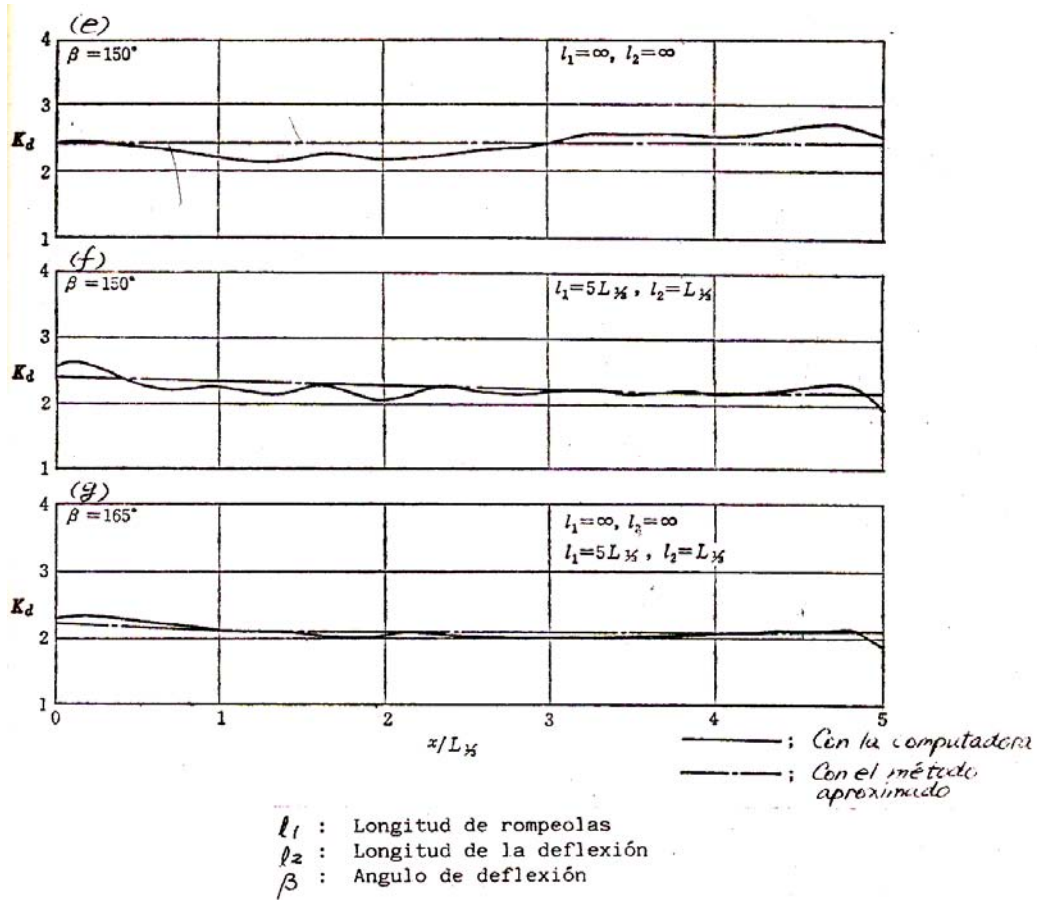 (e)
4
β = 150°
l₁=∞, l₂=∞
3
K_d
2
1
(f)
4
β = 150°
l₁=5L⅓, l₂=L⅓
3
K_d
2
1
(g)
4
β = 165°
l₁=∞, l₂=∞
l₁=5L⅓, l₂=L⅓
3
K_d
2
1
0 1 2 3 4 5
x/L⅓
; Con la computadora
; Con el método
aproximado
l₁ : Longitud de rompeolas
l₂ : Longitud de la deflexión
β : Angulo de deflexión